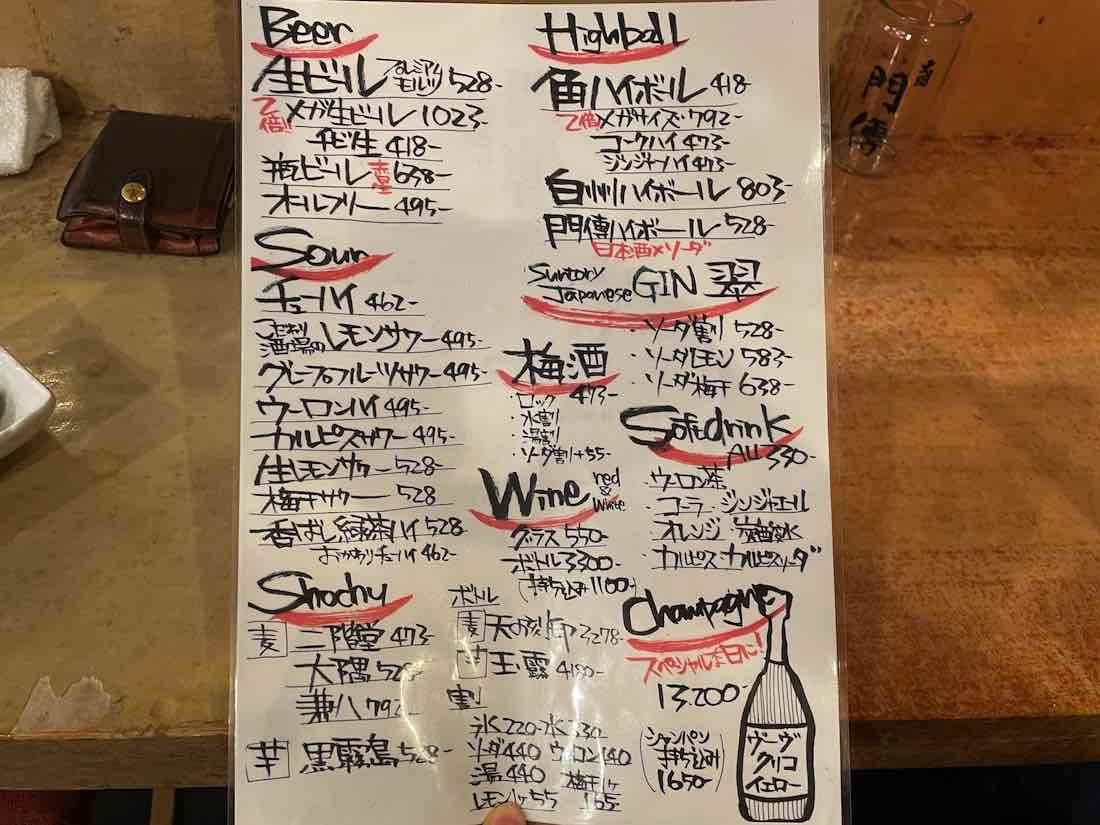 Beer
生ビール プレミアムモルツ 528-
2倍! メガ生ビール 1023-
チビ生 418-
瓶ビール 赤星 638-
オールフリー 495-
Sour
チューハイ 462-
こだわり酒場のレモンサワー 495-
グレープフルーツサワー 495-
ウーロンハイ 495-
カルピスサワー 495-
生レモンサワー 528-
梅干サワー 528
香ばし緑茶ハイ 528-
おかわりチューハイ 462-
Shochu
麦 二階堂 473-
大隅 528-
兼八 792-
芋 黒霧島 528-
Highball
角ハイボール 418-
2倍 メガサイズ・792-
コークハイ 473-
ジンジャーハイ 473-
白州ハイボール 803-
門傳ハイボール 528-
日本酒×ソーダ
Suntory Japanese GIN 翠
・ソーダ割 528-
・ソーダレモン 583-
・ソーダ梅干 638-
梅酒
・ロック 473-
・水割
・湯割
・ソーダ割+55-
Softdrink
All 330-
・ウーロン茶
・コーラ・ジンジャエール
・オレンジ・炭酸水
・カルピス・カルピスソーダ
Wine red & white
グラス 550-
ボトル 3300-
(持ち込み 1100-)
ボトル
麦 3,278-
芋 玉露 4180-
割
氷 220- 水 330-
ソーダ 440 ウーロン 440
湯 440 梅干1ケ
レモン1ケ 55 165-
Champagne
スペシャルな日に!
13,200-
(シャンパン
持ち込み
1650-)
ヴーヴ
クリコ
イエロー
門傳